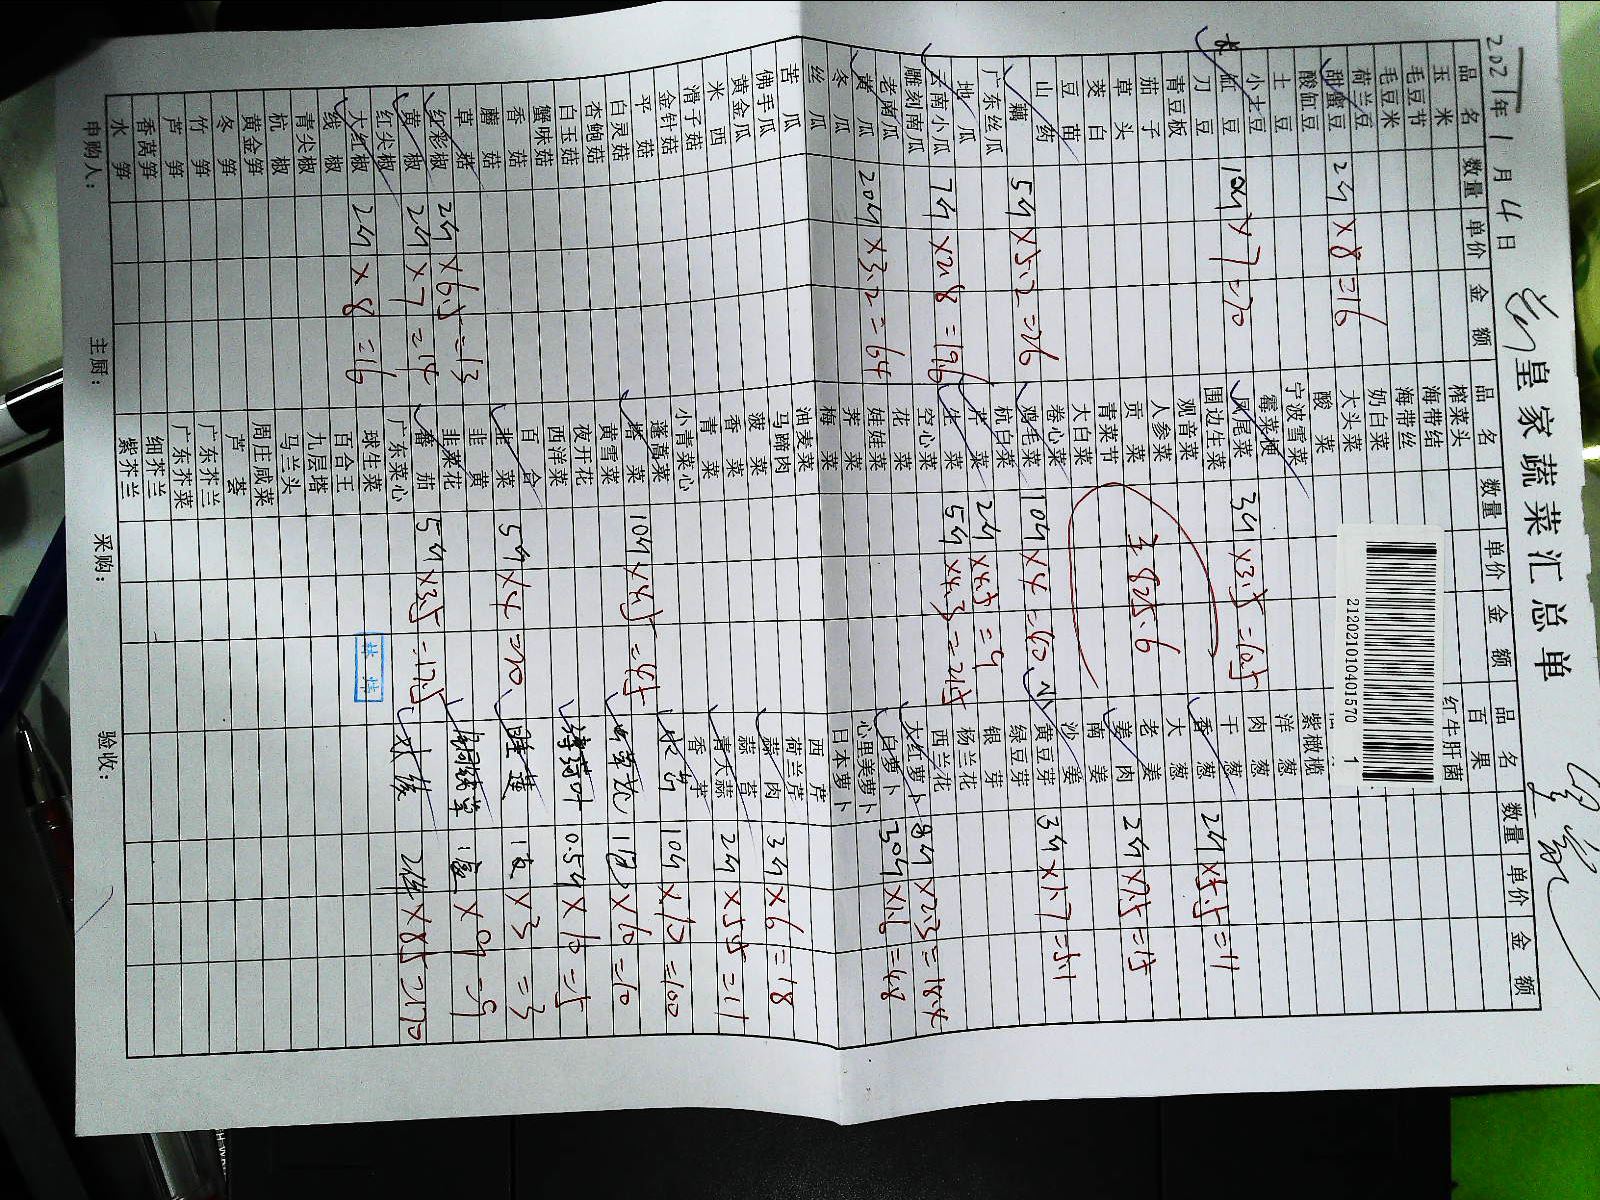 皇家蔬菜汇总单
2021年1月4日
品名 数量 单价 金额
玉米
毛豆节
毛豆米
荷兰豆
甜蜜豆 2斤×8=16
酸缸豆
土豆
小土豆
长缸豆 10斤×7=70
刀豆
青豆板
茄子
草头
茭白
豆苗
山药
藕 5斤×5.2=26
广东丝瓜
地瓜
云南小瓜 7斤×2.8=19.6
雕刻南瓜
老南瓜
黄瓜 20斤×3.2=64
冬瓜
丝瓜
苦瓜
佛手瓜
黄金瓜
米西
滑子菇
金针菇
平菇
白灵菇
杏鲍菇
白玉菇
蟹味菇
香菇
蘑菇
草菇
红彩椒 2斤×6.5=13
黄椒 2斤×7=14
红尖椒
大红椒 2斤×8=16
线椒
青尖椒
杭椒
黄金笋
冬笋
竹笋
芦笋
香莴笋
水笋
品名 数量 单价 金额
榨菜头
海带结
海带丝
奶白菜
大头菜
酸菜
宁波雪菜
霉菜梗
凤尾菜 3斤×3.5=10.5
围边生菜
观音菜
人参菜
贡菜
¥825.6
青菜节
大白菜
卷心菜
鸡毛菜 10斤×4=40
杭白菜
芹菜 2斤×4.5=9
生菜 5斤×4.3=21.5
空心菜
花菜
娃娃菜
荠菜
梅菜
油麦菜
马蹄肉
菠菜
香菜
青菜
小青菜心
蓬蒿菜
塔菜 10斤×4.5=45
黄雪菜
夜开花
西洋菜
百合
韭菜 5斤×4=20
韭黄
韭菜花
番茄 5斤×3.5=17.5
广东菜心
球生菜
百合王
九层塔
马兰头
周庄咸菜
芦荟
广东芥兰
广东芥菜
细芥兰
紫芥兰
品名 数量 单价 金额
百果
红牛肝菌
212021010401570 1
紫橄榄
洋葱
肉葱
干葱
香葱 2斤×5.5=11
大葱
老姜
姜肉 2斤×7.5=15
南姜
沙姜
小黄豆芽 3斤×1.7=5.1
绿豆芽
银芽
杨兰花
西兰花
大红萝卜 8斤×2.3=18.4
白萝卜 30斤×1.6=48
心里美萝卜
日本萝卜
西芹
荷兰芹
蒜肉 3斤×6=18
蒜苔
青大蒜 2斤×5.5=11
香芋
水笋 10斤×10=100
1包×10=10
0.5斤×10=5
1×3=3
1盒×9=9
2件×85=170
申购人:
主厨:
采购:
验收: